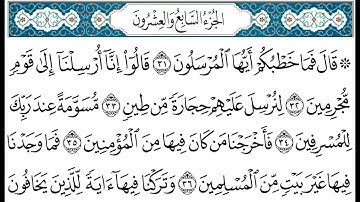 الجُزْءُ السَّابِعُ وَالعِشْرُونَ
۞ قَالَ فَمَا خَطْبُكُمْ أَيُّهَا ٱلْمُرْسَلُونَ ٣١ قَالُوٓا۟ إِنَّآ أُرْسِلْنَآ إِلَىٰ قَوْمٍ
مُّجْرِمِينَ ٣٢ لِنُرْسِلَ عَلَيْهِمْ حِجَارَةً مِّن طِينٍ ٣٣ مُّسَوَّمَةً عِندَ رَبِّكَ
لِلْمُسْرِفِينَ ٣٤ فَأَخْرَجْنَا مَن كَانَ فِيهَا مِنَ ٱلْمُؤْمِنِينَ ٣٥ فَمَا وَجَدْنَا
فِيهَا غَيْرَ بَيْتٍ مِّنَ ٱلْمُسْلِمِينَ ٣٦ وَتَرَكْنَا فِيهَآ ءَايَةً لِّلَّذِينَ يَخَافُونَ